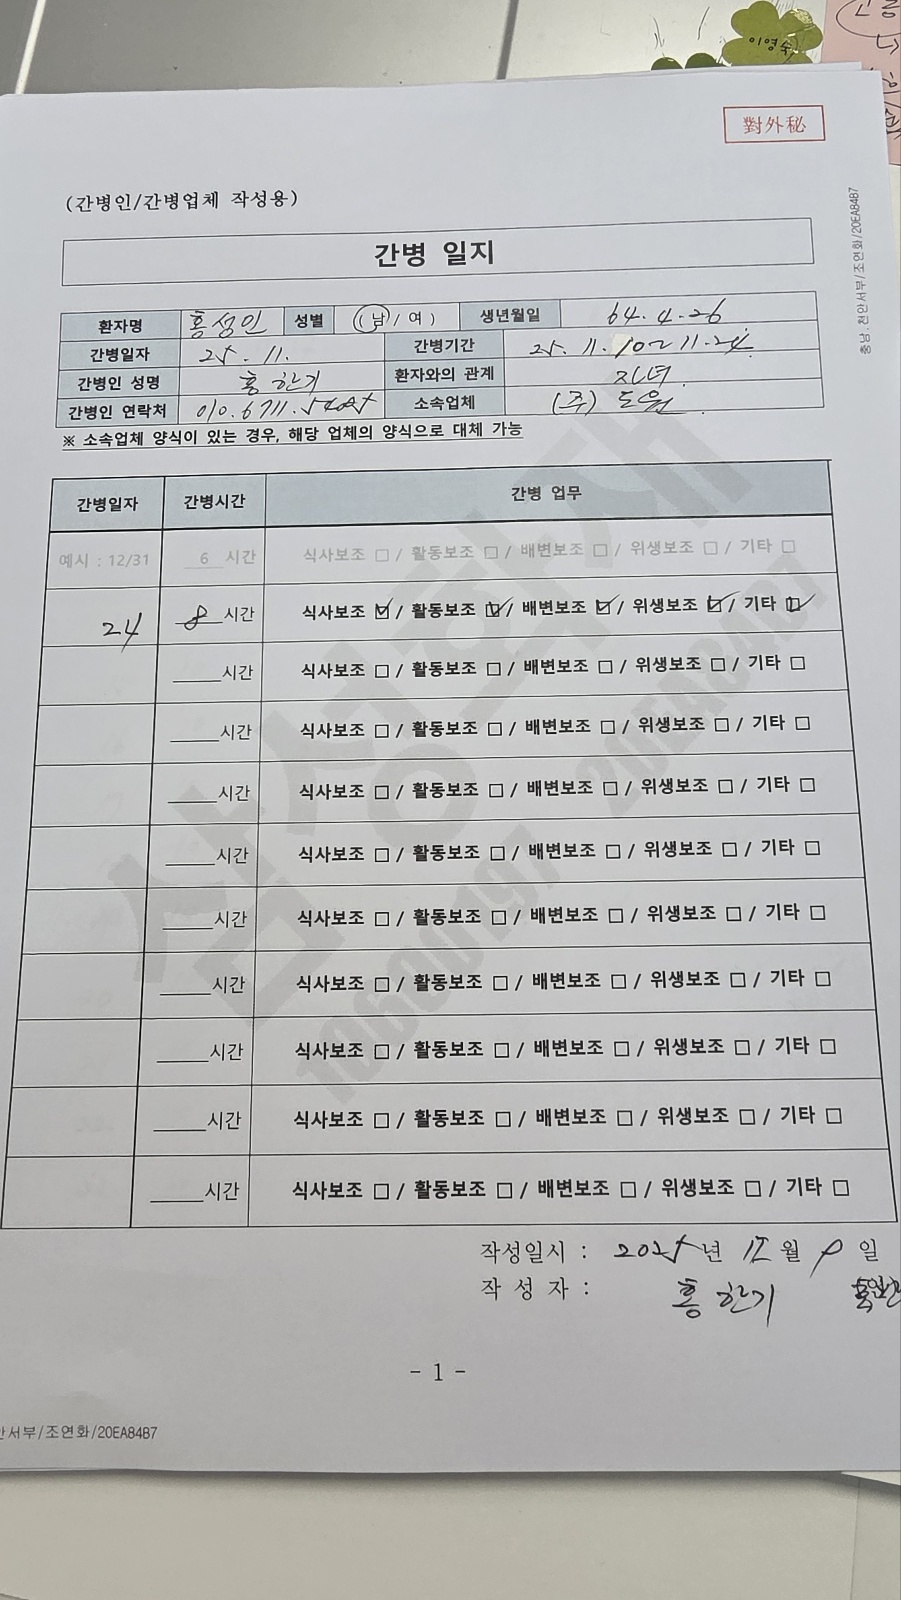 이영숙
對外秘
(간병인/간병업체 작성용)
충남.천안서부/조연화/20EA84B7
간병 일지
환자명 홍성인 성별 (남/여) 생년월일 64.4.26
간병일자 25.11. 간병기간 25.11.10~11.24.
간병인 성명 홍한기 환자와의 관계 자녀.
간병인 연락처 010.6711.5405 소속업체 (주)도원.
※ 소속업체 양식이 있는 경우, 해당 업체의 양식으로 대체 가능
간병일자 간병시간 간병 업무
예시 : 12/31 6 시간 식사보조 □ / 활동보조 □ / 배변보조 □ / 위생보조 □ / 기타 □
24 8 시간 식사보조 ☑ / 활동보조 ☑ / 배변보조 ☑ / 위생보조 ☑ / 기타 ☑
____시간 식사보조 □ / 활동보조 □ / 배변보조 □ / 위생보조 □ / 기타 □
____시간 식사보조 □ / 활동보조 □ / 배변보조 □ / 위생보조 □ / 기타 □
____시간 식사보조 □ / 활동보조 □ / 배변보조 □ / 위생보조 □ / 기타 □
____시간 식사보조 □ / 활동보조 □ / 배변보조 □ / 위생보조 □ / 기타 □
____시간 식사보조 □ / 활동보조 □ / 배변보조 □ / 위생보조 □ / 기타 □
____시간 식사보조 □ / 활동보조 □ / 배변보조 □ / 위생보조 □ / 기타 □
____시간 식사보조 □ / 활동보조 □ / 배변보조 □ / 위생보조 □ / 기타 □
____시간 식사보조 □ / 활동보조 □ / 배변보조 □ / 위생보조 □ / 기타 □
____시간 식사보조 □ / 활동보조 □ / 배변보조 □ / 위생보조 □ / 기타 □
삼성화재
20EA84B7
작성일시 : 2025년 12월 9일
작 성 자 : 홍한기
- 1 -
안서부/조연화/20EA84B7